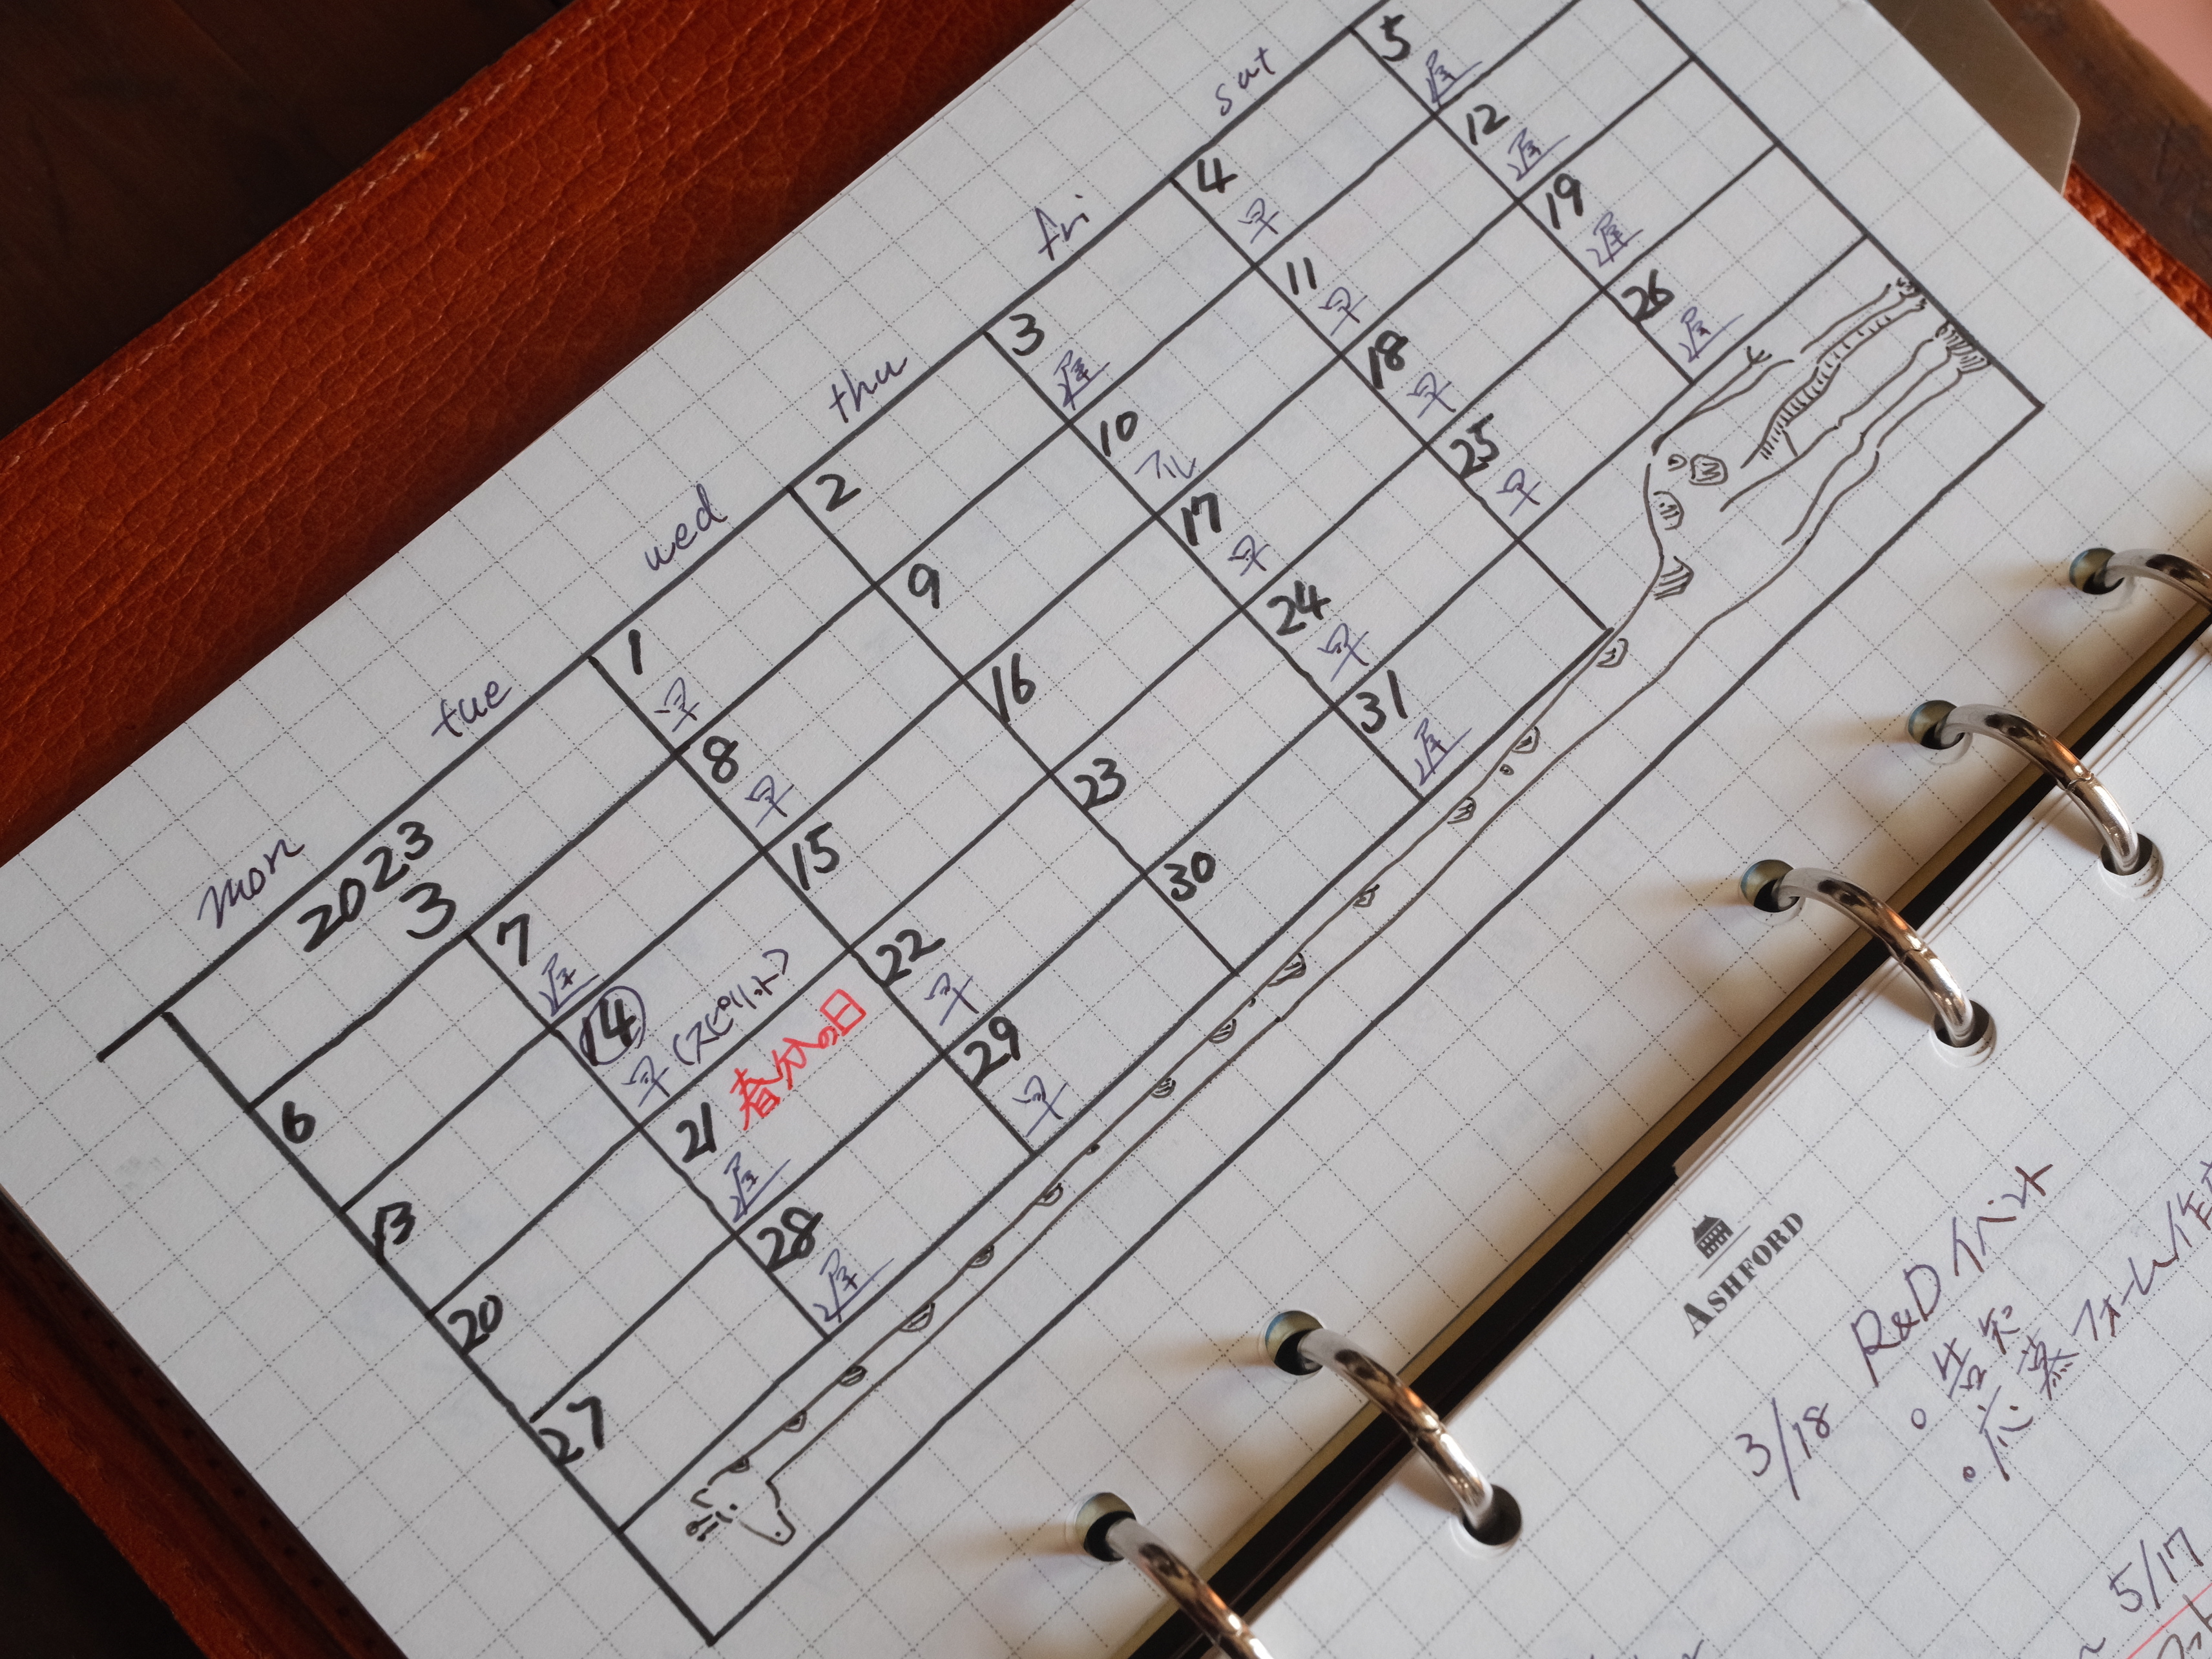 mon tue wed thu fri sat
2023
3
1 早
2
3 遅
4 早
5 遅
6
7 遅
8 早
9
10 フル
11 早
12 遅
13
14 早(スピリット)
15
16
17 早
18 早
19 遅
20
21 春分の日
遅
22 早
23
24 早
25 早
26 遅
27
28 遅
29 早
30
31 遅
ASHFORD
3/18 R&Dイベント
。告知
。応募フォーム作
5/17